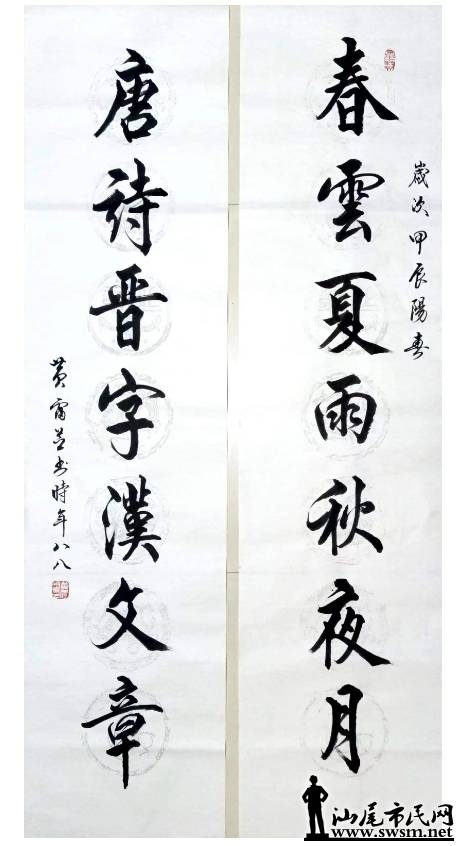 春雲夏雨秋夜月
歲次甲辰陽春
唐詩晋字漢文章
書時年八八
汕尾市民网
www.swsm.net